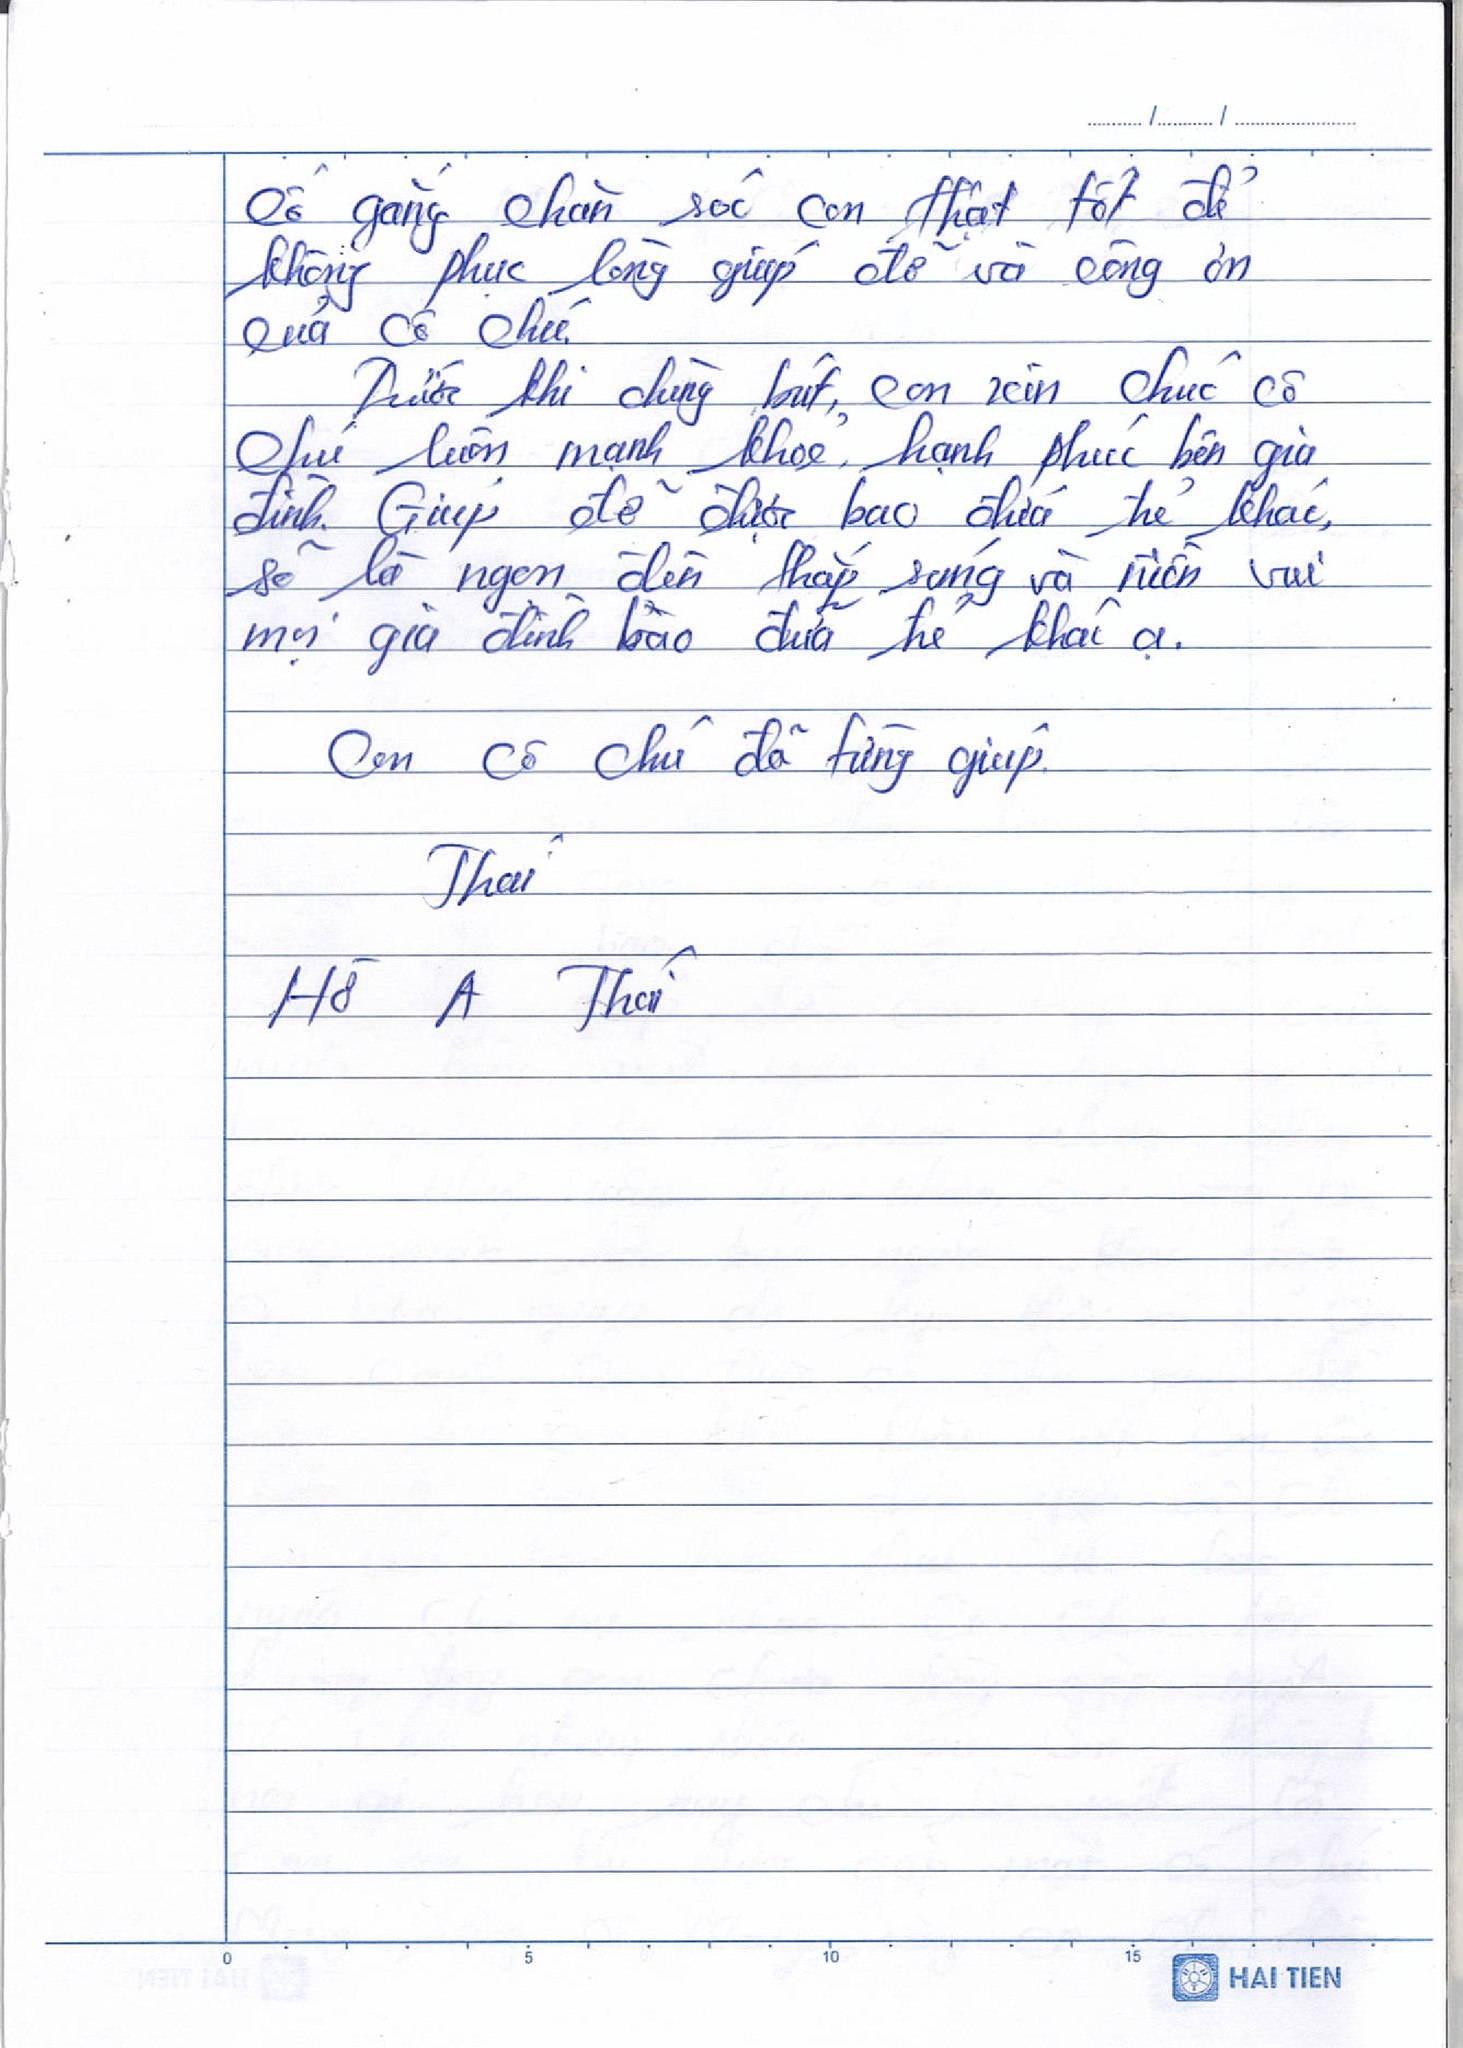 ...... / ...... / ............
Cố gắng chăn sóc con thật tốt để
không phục lòng giúp đỡ và công ơn
quả cô chú.
Trước khi dừng bút, con xin chúc cô
chú luôn mạnh khoẻ, hạnh phúc bên gia
đình. Giúp đỡ được bao đứa trẻ khác,
sẽ là ngọn đèn thắp sáng và niền vui
mọi gia đình bào đứa trẻ khác ạ.
Con cô chú đã từng giúp.
Thái
Hồ A Thái
0 5 10 15
HAI TIEN